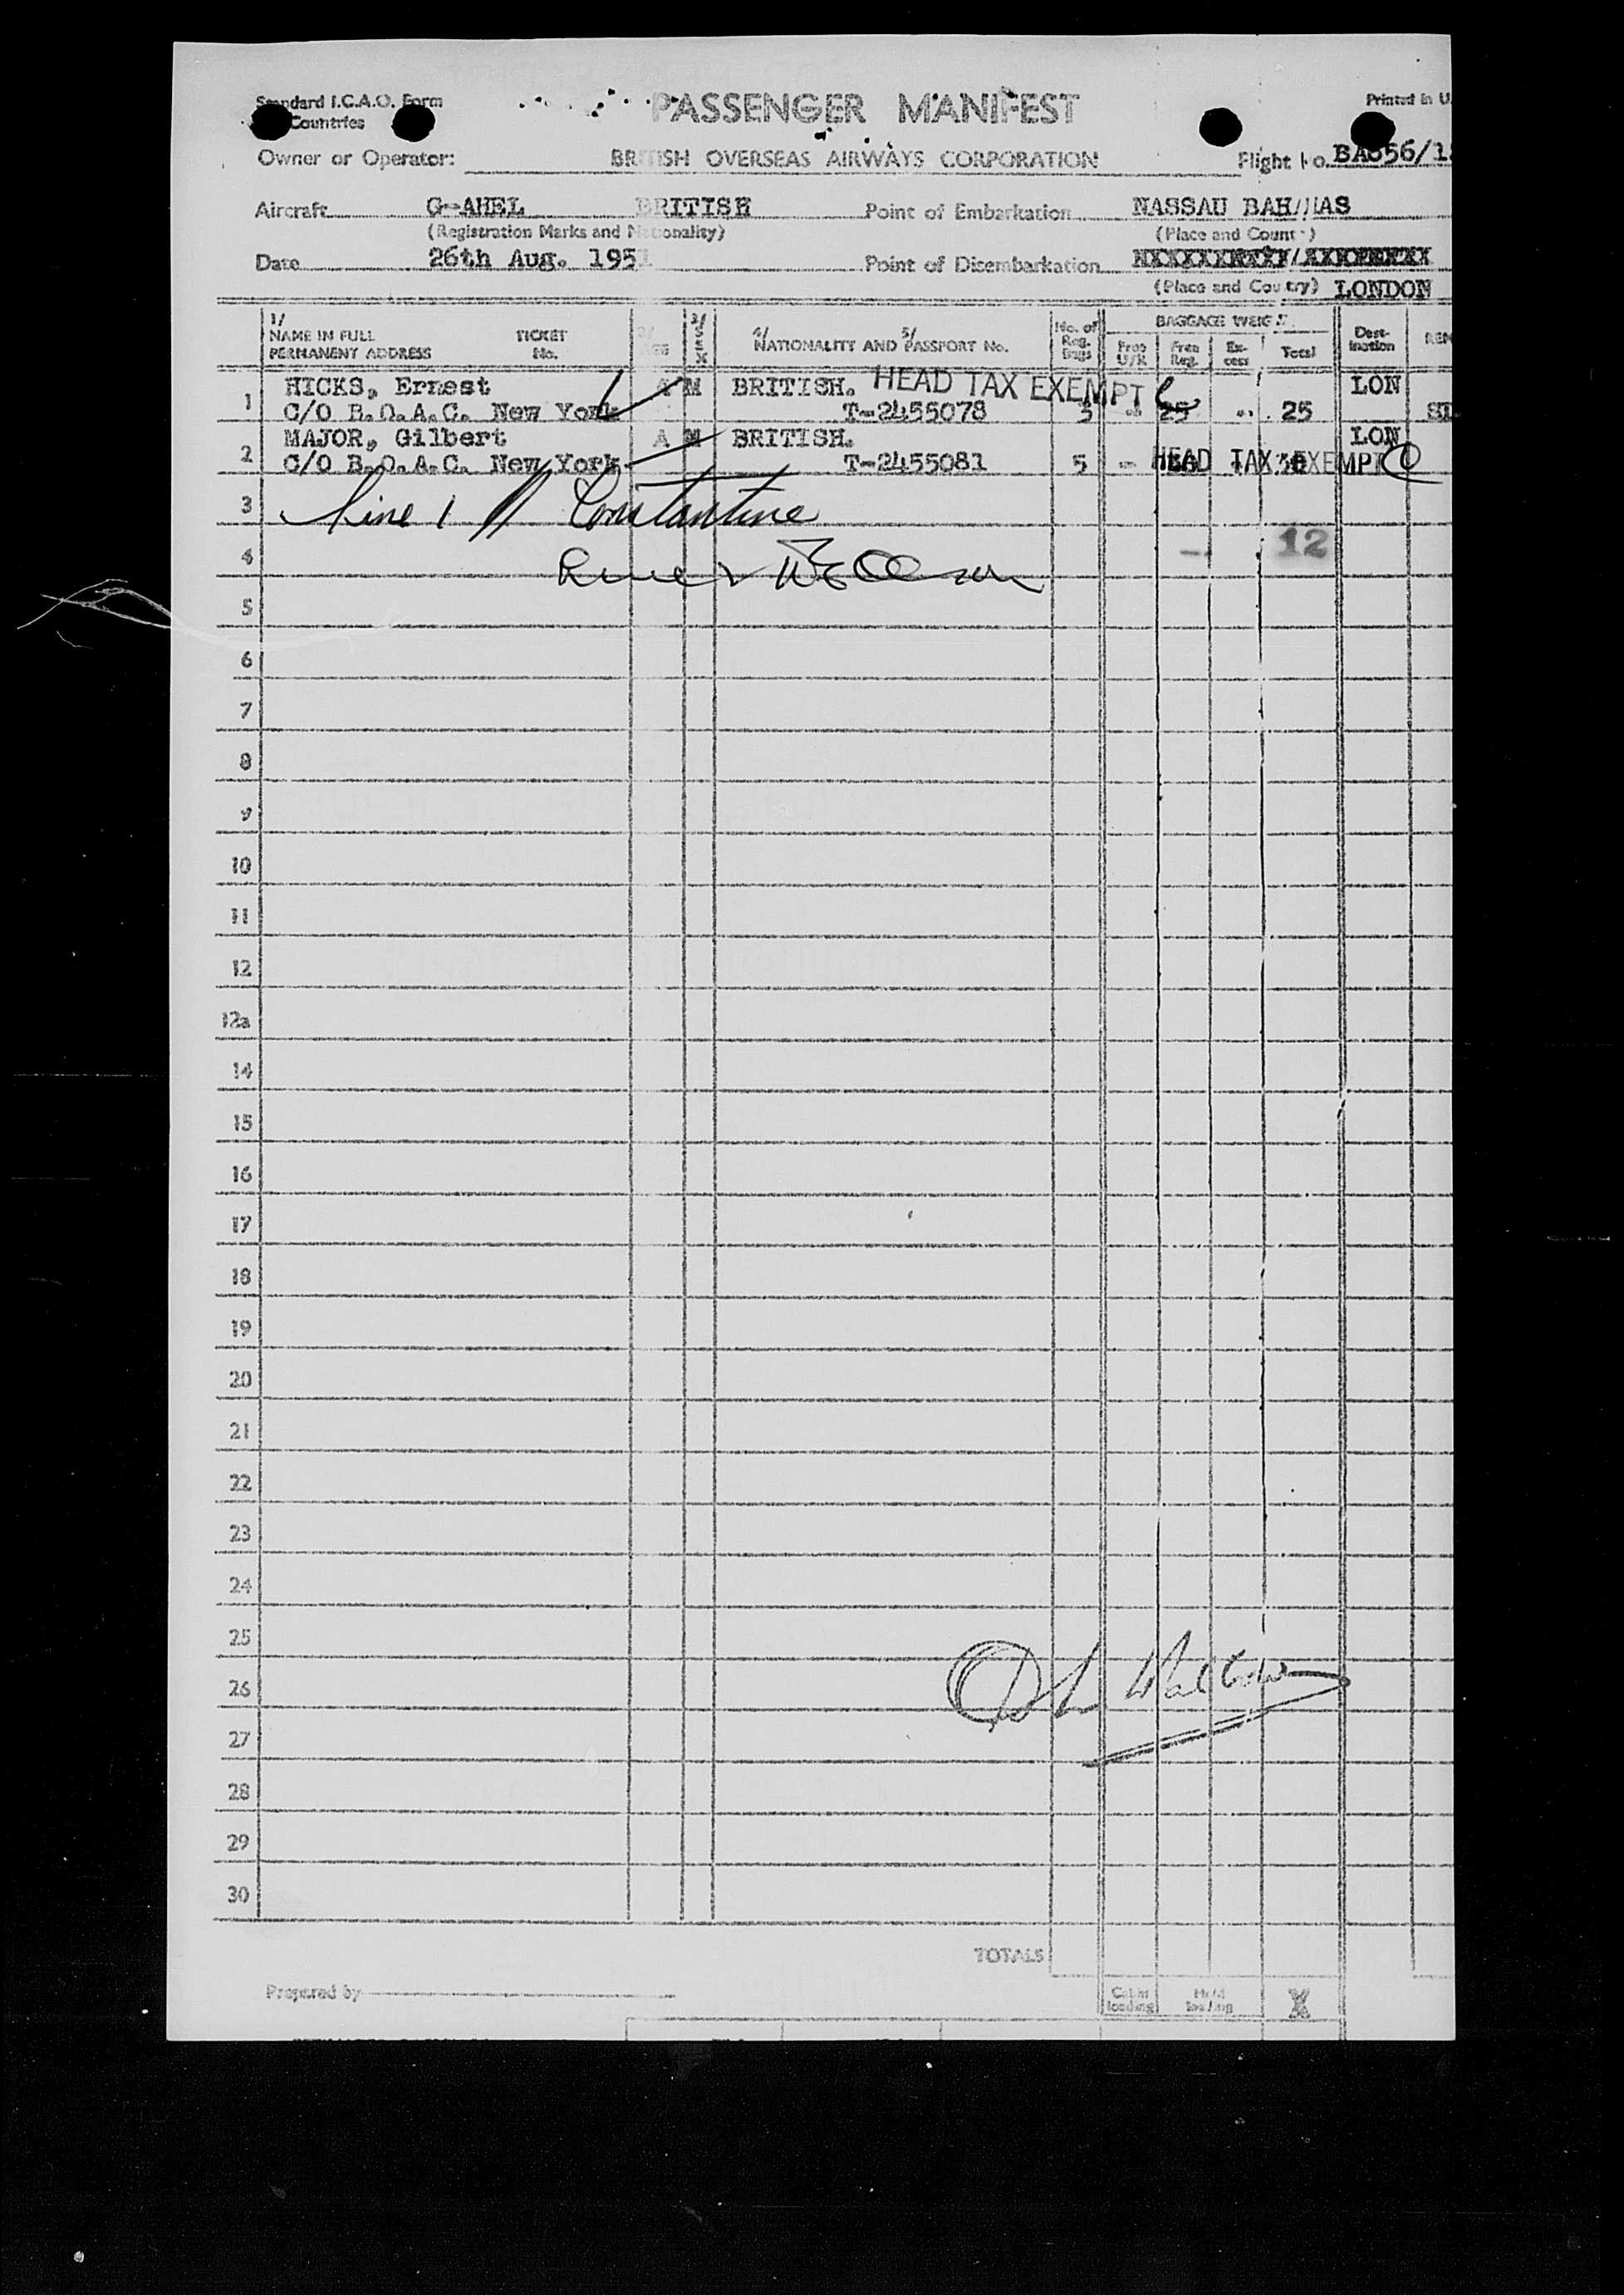 Standard I.C.A.O. Form
Countries
PASSENGER MANIFEST
Printed in U.
Owner or Operator: BRITISH OVERSEAS AIRWAYS CORPORATION Flight No.
Aircraft G-AHEL BRITISH Point of Embarkation NASSAU BAHAMAS
(Registration Marks and Nationality) (Place and Country)
Date 26th Aug. 1951 Point of Disembarkation
(Place and Country) LONDON
1/ NAME IN FULL PERMANENT ADDRESS TICKET No. 2/ AGE 3/ SEX 4/ NATIONALITY AND 5/ PASSPORT No. No. of Reg. Bags BAGGAGE WEIGHT Free U/K Free Reg. Excess Total Destination REM
1 HICKS, Ernest A M BRITISH. HEAD TAX EXEMPT LON
C/O B.O.A.C. New York T-2455078 3 - 25 - 25
2 MAJOR, Gilbert A M BRITISH. LON
C/O B.O.A.C. New York T-2455081 5 - HEAD TAX EXEMPT
3 Line 1 Constantine
4 12
5
6
7
8
9
10
11
12
12a
14
15
16
17
18
19
20
21
22
23
24
25
26
27
28
29
30
TOTALS
Prepared by Cabin loading Hold loading X